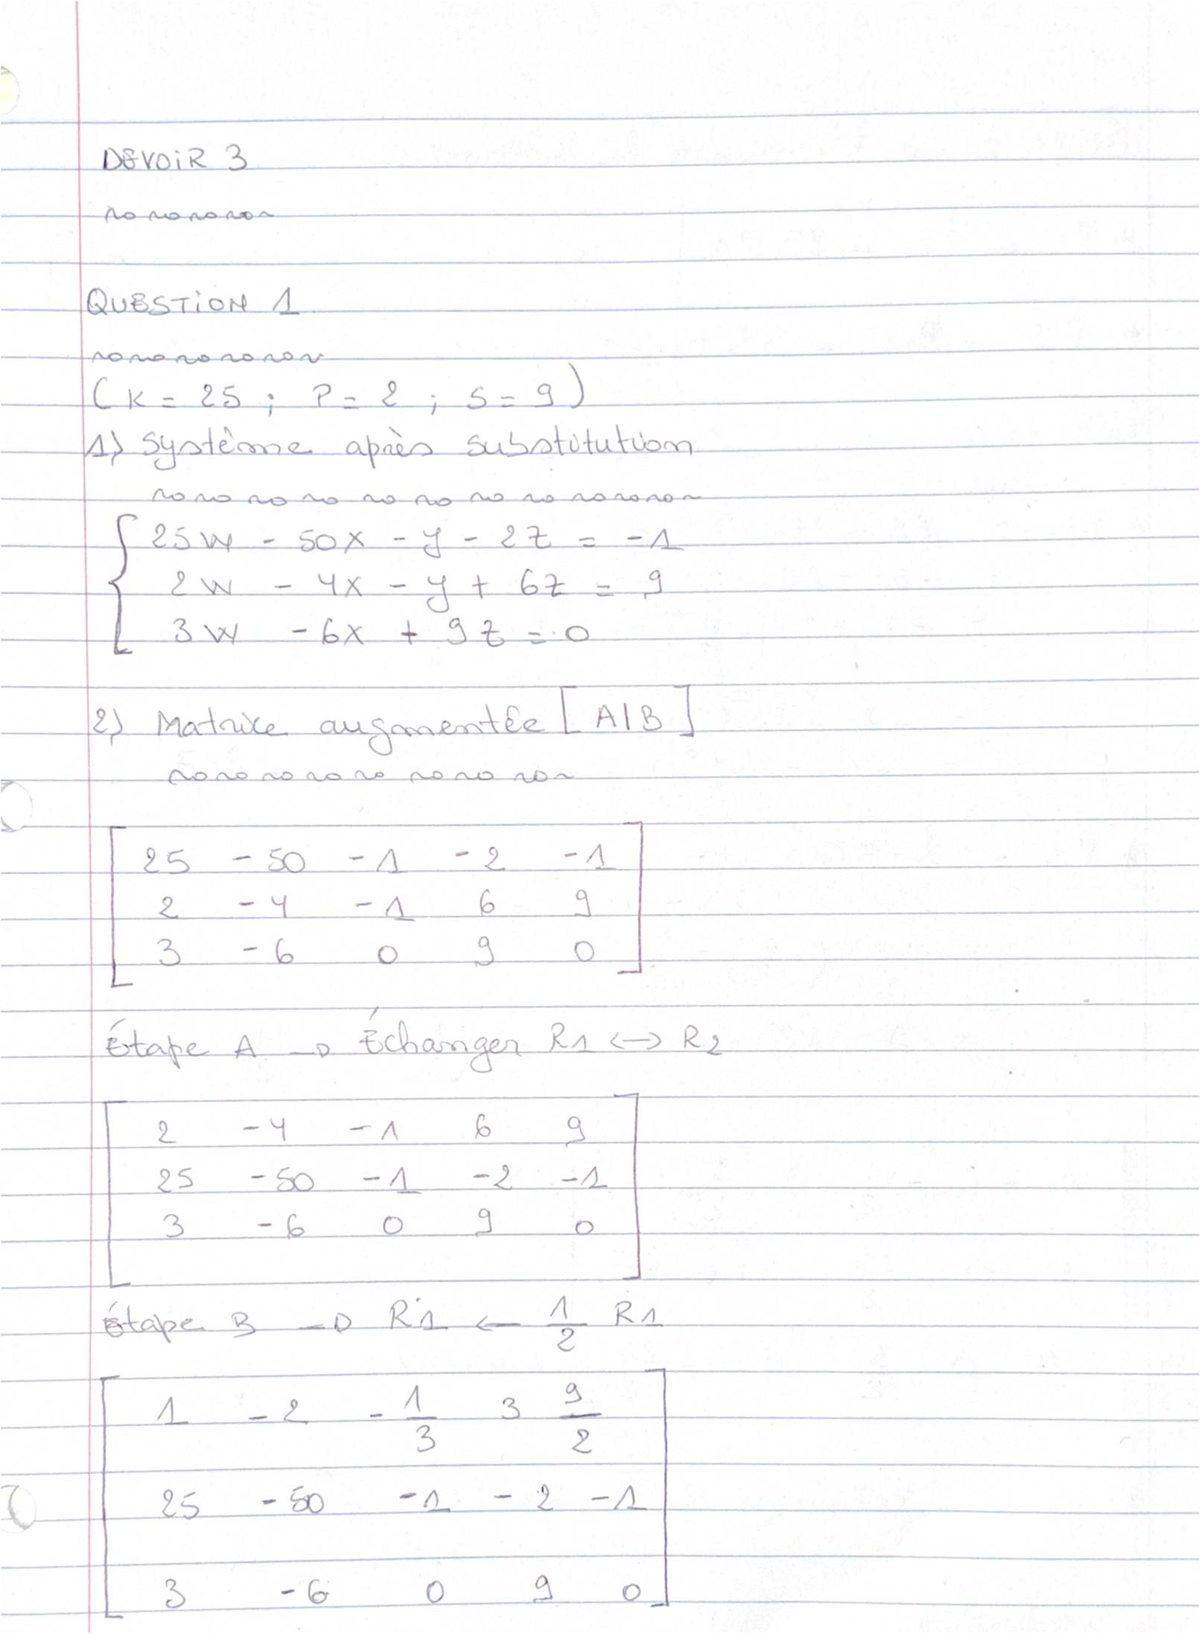 DEVOIR 3
QUESTION 1
(K = 25 ; P = 2 ; S = 9)
1) Système après substitution
25W - 50X - y - 2Z = -1
2W - 4X - y + 6Z = 9
3W - 6X + 9Z = 0
2) Matrice augmentée [A|B]
25 -50 -1 -2 -1
2 -4 -1 6 9
3 -6 0 9 0
Étape A → Échanger R1 <-> R2
2 -4 -1 6 9
25 -50 -1 -2 -1
3 -6 0 9 0
Étape B → R1 ← 1/2 R1
1 -2 -1/3 3 9/2
25 -50 -1 -2 -1
3 -6 0 9 0